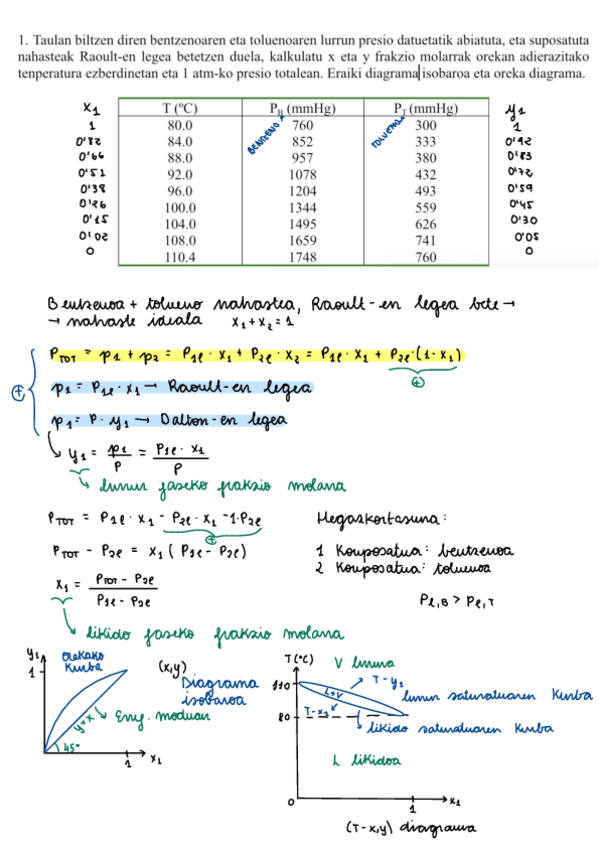 1. Taulan biltzen diren bentzenoaren eta toluenoaren lurrun presio datuetatik abiatuta, eta suposatuta
nahasteak Raoult-en legea betetzen duela, kalkulatu x eta y frakzio molarrak orekan adierazitako
tenperatura ezberdinetan eta 1 atm-ko presio totalean. Eraiki diagrama isobaroa eta oreka diagrama.
x₁ T (ºC) P_B (mmHg) P_T (mmHg) y₁
BENZENO TOLUENO
1 80.0 760 300 1
0'82 84.0 852 333 0'92
0'66 88.0 957 380 0'83
0'51 92.0 1078 432 0'72
0'38 96.0 1204 493 0'59
0'26 100.0 1344 559 0'45
0'15 104.0 1495 626 0'30
0'02 108.0 1659 741 0'05
0 110.4 1748 760 0
Bentzenoa + tolueno nahastea, Raoult-en legea bete →
→ nahaste ideala x₁+x₂=1
P_TOT = p₁ + p₂ = P₁ℓ · x₁ + P₂ℓ · x₂ = P₁ℓ · x₁ + P₂ℓ·(1-x₁)
p₁ = P₁ℓ · x₁ → Raoult-en legea
p₁ = P · y₁ → Dalton-en legea
y₁ = p₁/P = P₁ℓ · x₁/P
lurrun faseko frakzio molarra
P_TOT = P₁ℓ · x₁ - P₂ℓ · x₁ -1·P₂ℓ
Hegazkortasuna:
P_TOT - P₂ℓ = x₁ (P₁ℓ - P₂ℓ)
1 Konposatua: bentzenoa
2 Konposatua: toluenoa
x₁ = P_TOT - P₂ℓ / P₁ℓ - P₂ℓ
Pℓ,B > Pℓ,T
likido faseko frakzio molarra
y₁ orekako kurba
(x,y) Diagrama isobaroa
1
y=x Erreg. moduan
45°
1 x₁
T(ºC) V lurruna
110 L+V T-y₁
lurrun saturatuaren kurba
80 T-x₁
likido saturatuaren kurba
L likidoa
0 1 x₁
(T-x,y) diagrama